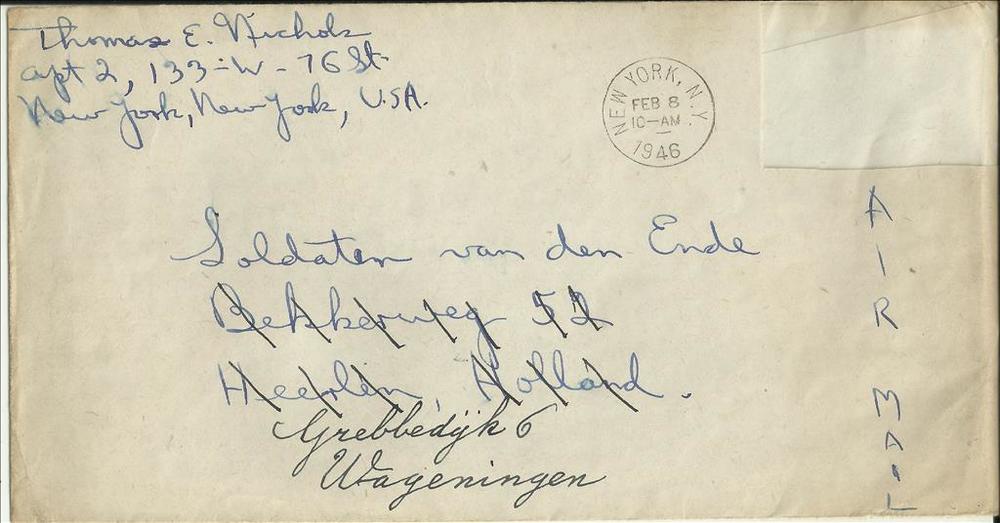 Thomas E. Nichols
apt 2, 133-W-76 St.
New York, New York, U.S.A.
NEW YORK, N.Y.
FEB 8
10-AM
1946
AIR MAIL
Soldaten van den Ende
Bekkerweg 52
Heerlen, Holland.
Grebbedijk 6
Wageningen